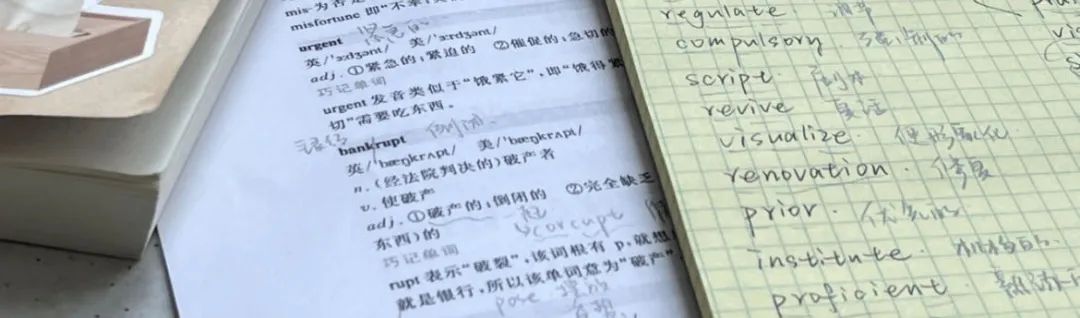 misfortune 即“不幸
urgent 紧急的
英/'ɜːdʒənt/ 美/'ɜːrdʒənt/
adj. ①紧急的;紧迫的 ②催促的;急切的
巧记单词
urgent 发音类似于“饿紧它”,即“饿得紧
切”需要吃东西。
bankrupt 倒闭
银行
英/'bæŋkrʌpt/ 美/'bæŋkrʌpt/
n. (经法院判决的)破产者
v. 使破产
adj. ①破产的;倒闭的 ②完全缺乏
东西)的
corrupt
巧记单词
rupt 表示“破裂”,该词根有 p,就想
就是银行,所以该单词意为“破产”
pose
regulate 调节
compulsory 强制的
script 剧本
revive 复活
visualize 使形象化
renovation 修复
prior 优先的
institute 机构
proficient 熟练